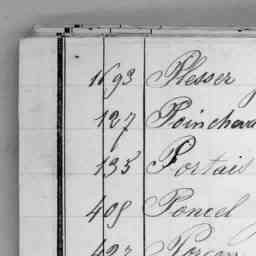 1693 Plesser
127 Poincheva
135 Portais
409 Poncel
423